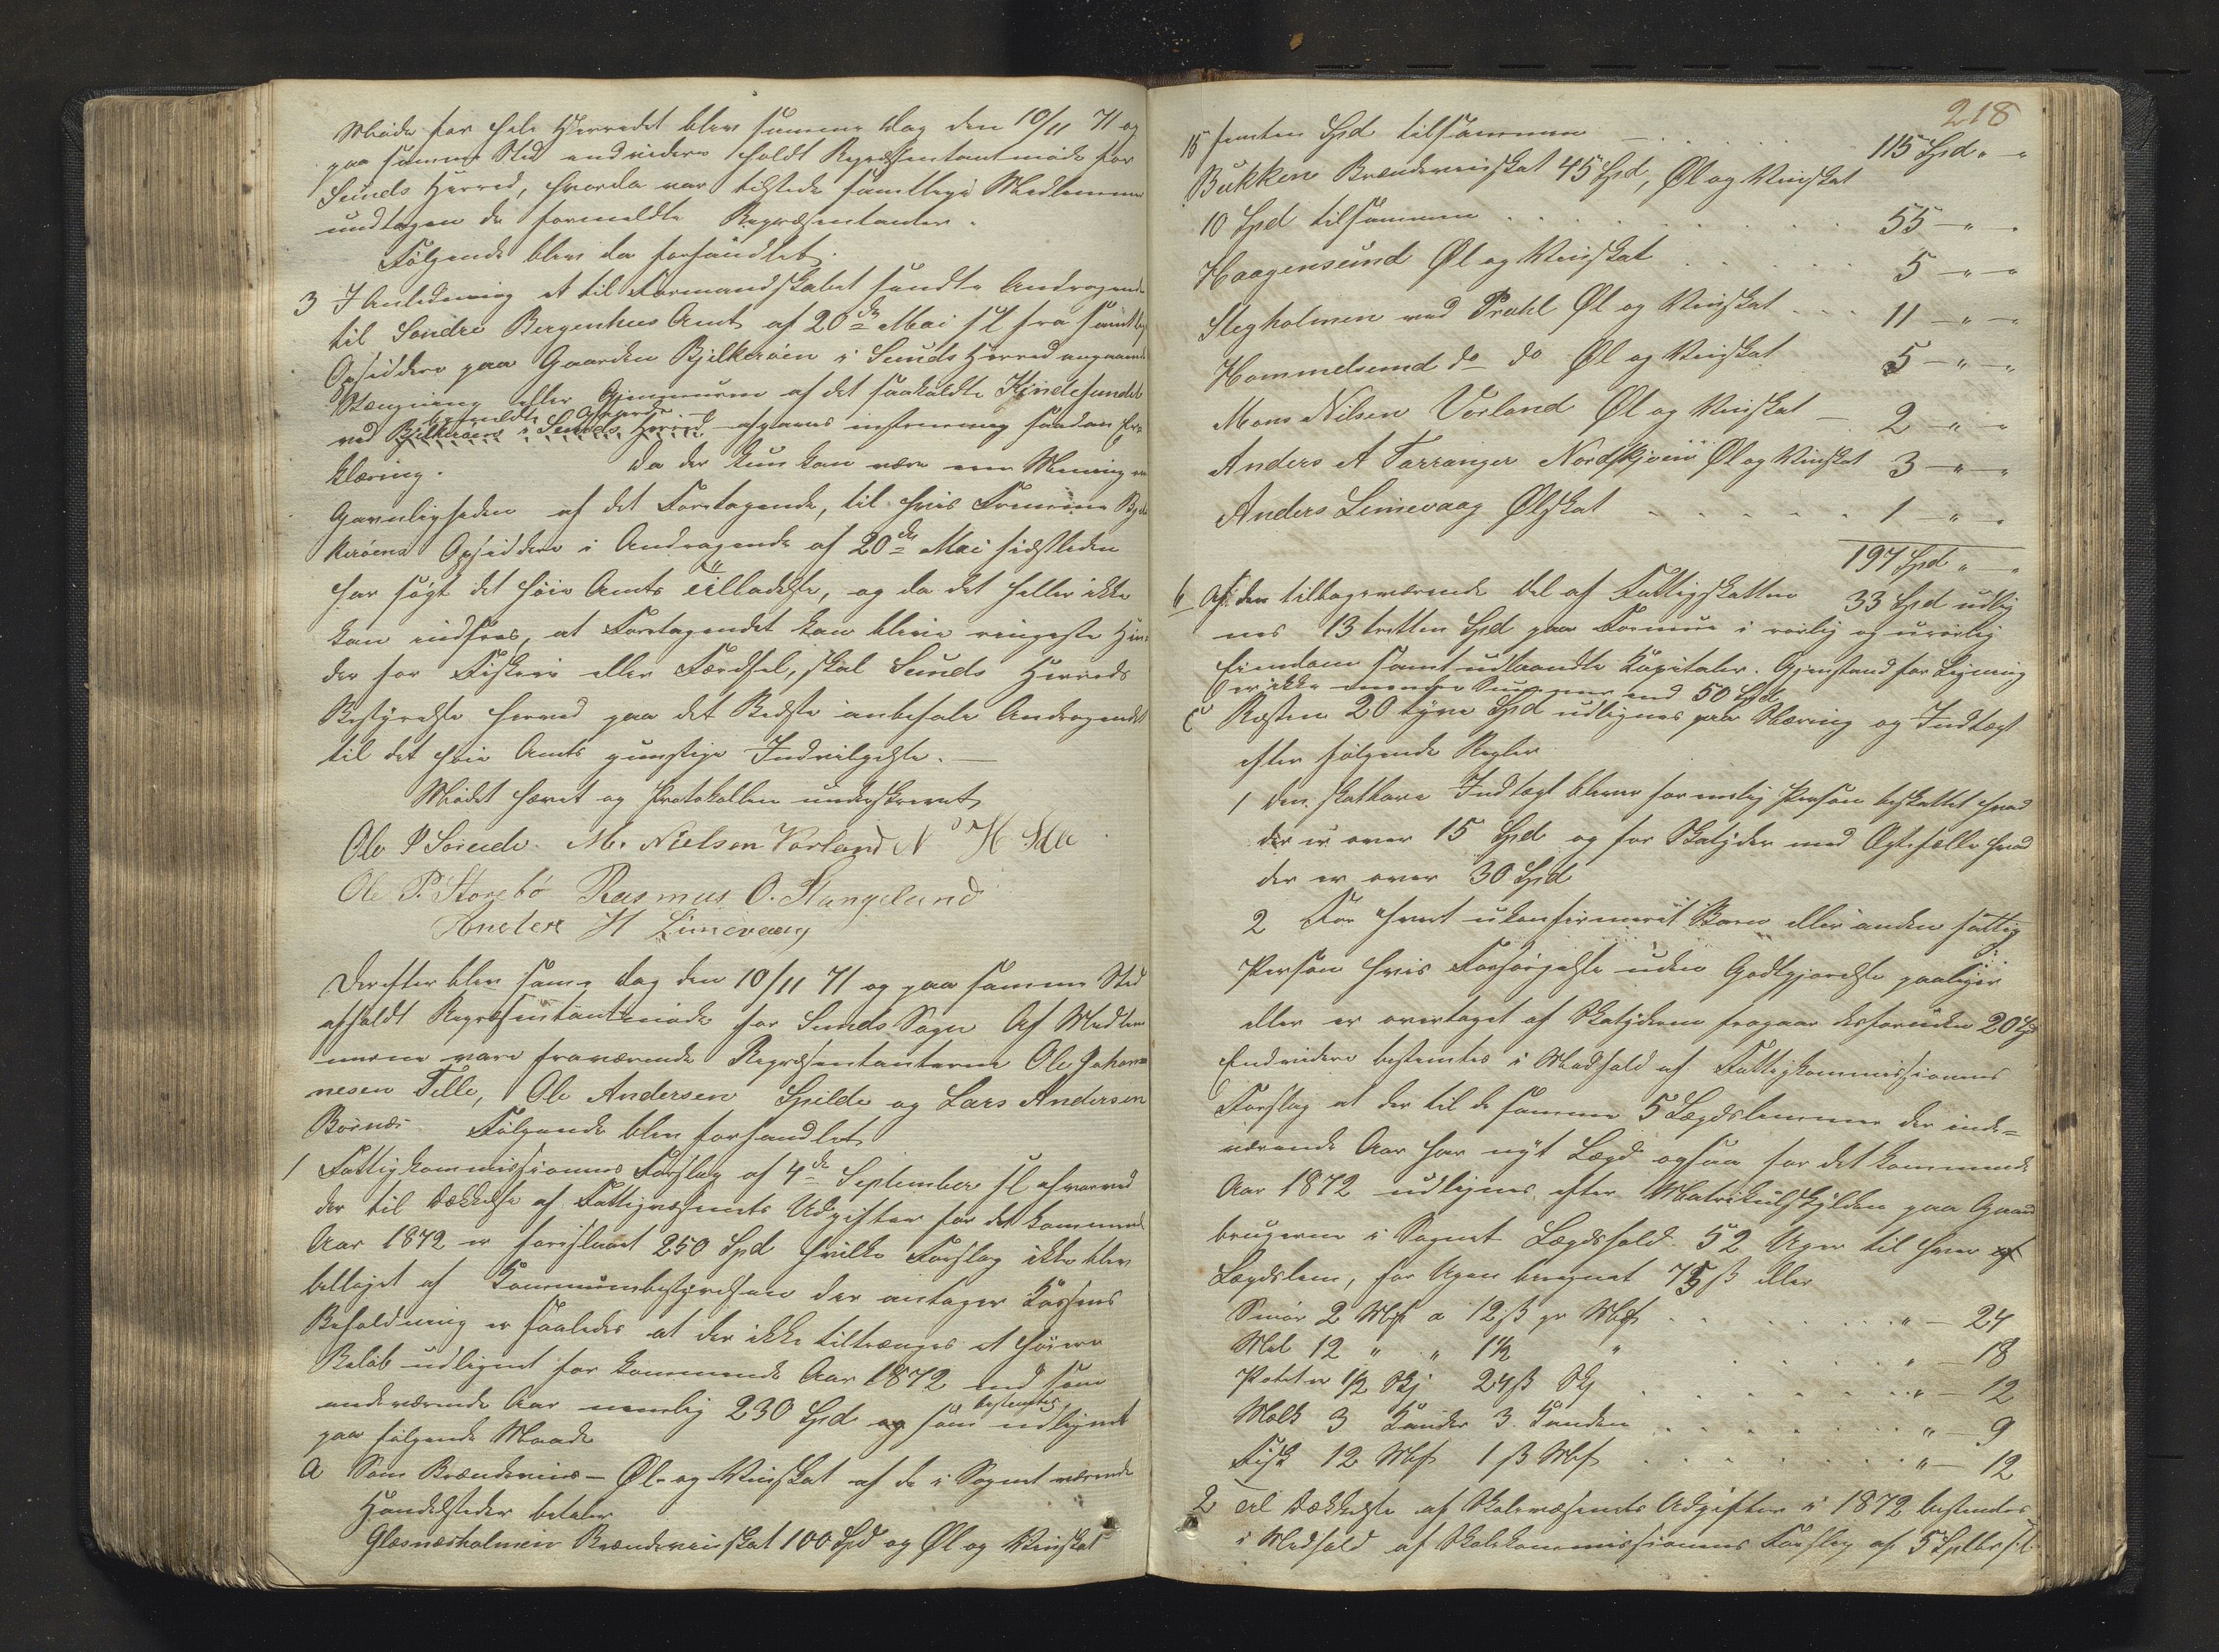 Møde for hele Herredet blev samme Dag den 10/11 71 og
paa samme Sted endvidere holdt Repræsentantmøde for
Sunds Herred, hvorda var tilstede samtlige Medlemmer
undtagen de formeldte Repræsentanter.
Følgende blev da forhandlet.
3 I Anledning et til Formandskabet sendte Andragende
til Søndre Bergenhus Amt af 20de Mai sl fra samtlige
Opsiddere paa Gaarden Bjelkerøen i Sunds Herred angaaende
Stængning eller Gjenmuren af det saakaldte Kjindesundet
bemeldte Gaard
ved Bjelkerøens i Sunds Herred afgaves enstemmig saadan Er-
klæring. Da der kun kan være en Mening om
Gavnligheden af det Foretagende, til hvis Fremme Bjel-
kerøens Opsiddere i Andragende af 20de Mai sidstleden
har søgt det høie Amts Tilladelse, og da det heller ikke
kan indsees, at Foretagendet kan blive ringeste Hin-
der for Fiskeri eller Færdsel, skal Sunds Herreds
Bestyrelse herved paa det Bedste anbefale Andragendet
til det høie Amts gunstige Indvilgelse. —
Mødet hævet og Protokollen underskrevet
Ole P Sørude. M. Nielsen Vorland N H
Ole P. Storebø Rasmus O. Stangeland
Anders H Limevaag
Derefter blev samme Dag den 10/11 71 og paa samme Sted
afholdt Repræsentantmøde for Sunds Sogn Af Medlem-
merne vare fraværende Repræsentanterne Ole Johan-
nesen Telle, Ole Andersen Spilde og Lars Andersen
Børnæs Følgende blev forhandlet
1 Fattigkommissionens Forslag af 4de September sl hvorved
der til Dækkelse af Fattigvæsenets Udgifter for det kommende
Aar 1872 er foreslaaet 250 Spd hvilke Forslag ikke blev
billiget af Kommunebestyrelsen der antager Kassens
Beholdning er saaledes at der ikke tiltrænges et høiere
Beløb udlignet for kommende Aar 1872 end som
bestemtes
indeværende Aar nemlig 230 Spd og som udlignet
paa følgende Maade
a Som Brændevins- Øl- og Vinskat af de i Sognet værende
Handelssteder betaler
Glæsnæsholmen Brændevinskat 100 Spd og Øl og Vinskat
218
15 femten Spd tilsammen — . . . . 115 Spd " "
Bukken Brændevinskat 45 Spd, Øl og Vinskat
10 Spd tilsammen . . . . . . 55 — " "
Haagensund Øl og Vinskat . . . . . 5 — " — "
Slegholmen ved Prahl Øl og Vinskat . . . 11 — " — "
Hommelsund do do Øl og Vinskat 5 — " — "
Mons Nilsen Vorland Øl og Vinskat — 2 — " — "
Anders A Tarranger Nordskjøen Øl og Vinskat 3 — " — "
Anders Limevaag Ølskat . . . . . 1 — " — "
197 Spd " — "
b Af den tilbageværende Del af Fattigskatten 33 Spd udlig-
nes 13 tretten Spd paa Formue i rørlig og urørlig
Eiendom samt udlaandte Kapitaler. Gjenstand for Ligning
er ikke mindre Summer end 50 Spd
c Resten 20 tyve Spd udlignes paa Næring og Indtægt
efter følgende Regler
1 Den skatbare Indtægt bliver for enslig Person beskattet hvad
der er over 15 Spd og for Skatyder med Ægtefælle hvad
der er over 30 Spd
2 For hvert ukonfirmeret Barn eller anden fattig
Person hvis Forsørgelse uden Godtgjørelse paaligger
eller er overtaget af Skatyderen fragaar desforuden 20 Spd
Endvidere bestemtes i Medhold af Fattigkommissionens
Forslag at der til de samme 5 Lægdslemmer der inde-
værende Aar har nyt Lægd ogsaa for det kommende
Aar 1872 udlignes efter Matrikulskylden paa Gaard-
brugerne i Sognet Lægdshold 52 Uger til hver af
Lægdslem, for Ugen beregnet 75 ß eller
Smør 2 Mk a 12 ß pr Mk . . . . . . " — 24
Mel 12 " " 1½ " . . . . . " — 18
Poteter ½ Skj 24 ß Skj . . . . . " — 12
Melk 3 Kander 3. Kanden . . . . . " — 9
Fisk 12 Mk 1 ß Mk . . . . . " — 12
2 Til Dækkelse af Skolevæsenets Udgifter i 1872 bestemtes
i Medhold af Skolekommissionens Forslag af 5 Septbr s.l.